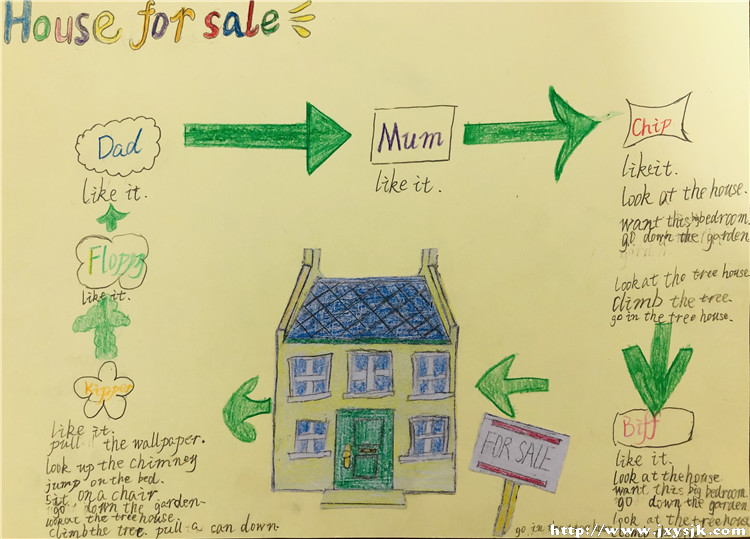 House for sale
Dad
like it.
Mum
like it.
Chip
like it.
look at the house.
want this big bedroom.
go down the garden
look at the tree house
climb the tree.
go in the tree house.
Floppy
like it.
Kipper
like it.
pull the wallpaper.
look up the chimney
jump on the bed.
sit on a chair
go down the garden
look at the tree house.
climb the tree. pull a can down.
FOR SALE
Biff
like it.
look at the house
want this big bedroom.
go down the garden
look at the tree
go in the
http://www.jxysjk.com